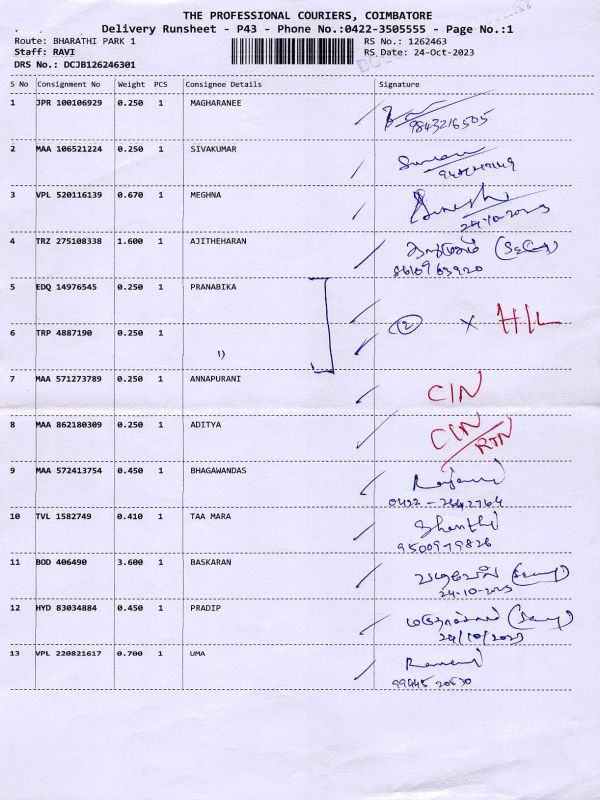 THE PROFESSIONAL COURIERS, COIMBATORE
Delivery Runsheet - P43 - Phone No.:0422-3505555 - Page No.:1
Route: BHARATHI PARK 1 RS No.: 1262463
Staff: RAVI RS Date: 24-Oct-2023
DRS No.: DCJB126246301
S No Consignment No Weight PCS Consignee Details Signature
1 JPR 100106929 0.250 1 MAGHARANEE
9843216505
2 MAA 106521224 0.250 1 SIVAKUMAR
3 VPL 520116139 0.670 1 MEGHNA
24-10-2023
4 TRZ 275108338 1.600 1 AJITHEHARAN
8610963920
5 EDQ 14976545 0.250 1 PRANABIKA
2 x H/L
6 TRP 4887190 0.250 1
1)
7 MAA 571273789 0.250 1 ANNAPURANI CIN
8 MAA 862180309 0.250 1 ADITYA CIN
RTN
9 MAA 572413754 0.450 1 BHAGAWANDAS
0422-2642764
10 TVL 1582749 0.410 1 TAA MARA Shanthi
9500979826
11 BOD 406490 3.600 1 BASKARAN
24-10-2023
12 HYD 83034884 0.450 1 PRADIP
24/10/2023
13 VPL 220821617 0.700 1 UMA
99445 20530